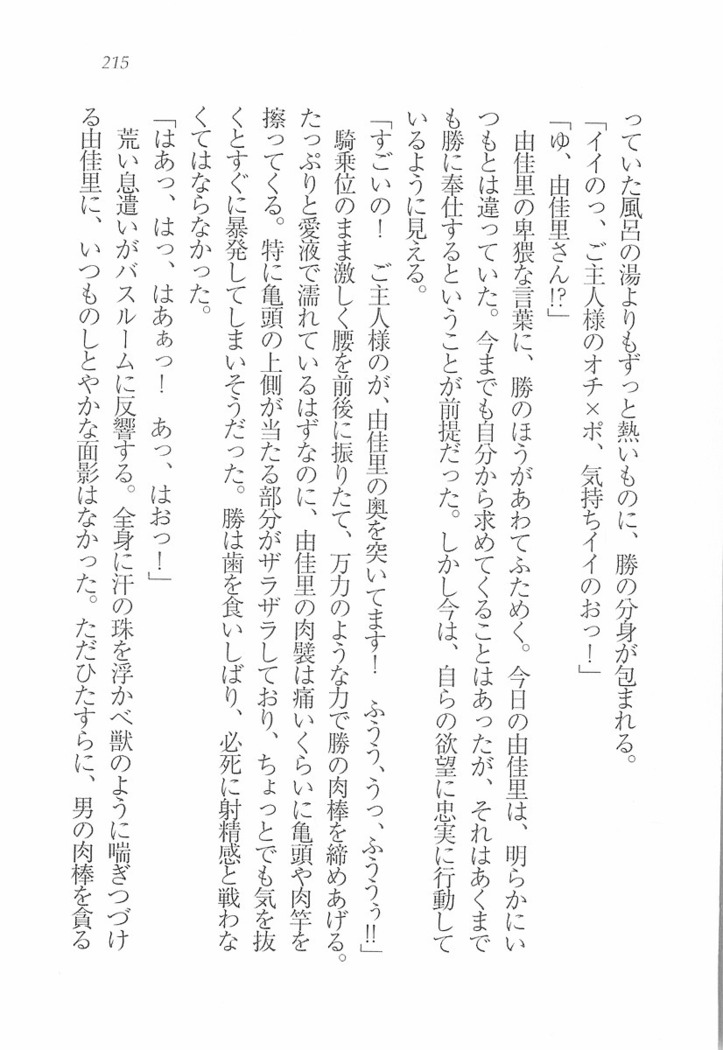 215
っていた風呂の湯よりもずっと熱いものに、勝の分身が包まれる。
「イイのっ、ご主人様のオチ×ポ、気持ちイイのおっ！」
「ゆ、由佳里さん!?」
由佳里の卑猥な言葉に、勝のほうがあわてふためく。今日の由佳里は、明らかにい
つもとは違っていた。今までも自分から求めてくることはあったが、それはあくまで
も勝に奉仕するということが前提だった。しかし今は、自らの欲望に忠実に行動して
いるように見える。
「すごいの！　ご主人様のが、由佳里の奥を突いてます！　ふうう、うっ、ふううぅ!!」
騎乗位のまま激しく腰を前後に振りたて、万力のような力で勝の肉棒を締めあげる。
たっぷりと愛液で濡れているはずなのに、由佳里の肉襞は痛いくらいに亀頭や肉竿を
擦ってくる。特に亀頭の上側が当たる部分がザラザラしており、ちょっとでも気を抜
くとすぐに暴発してしまいそうだった。勝は歯を食いしばり、必死に射精感と戦わな
くてはならなかった。
「はあっ、はっ、はあぁっ！　あっ、はおっ！」
荒い息遣いがバスルームに反響する。全身に汗の珠を浮かべ獣のように喘ぎつづけ
る由佳里に、いつものしとやかな面影はなかった。ただひたすらに、男の肉棒を貪る